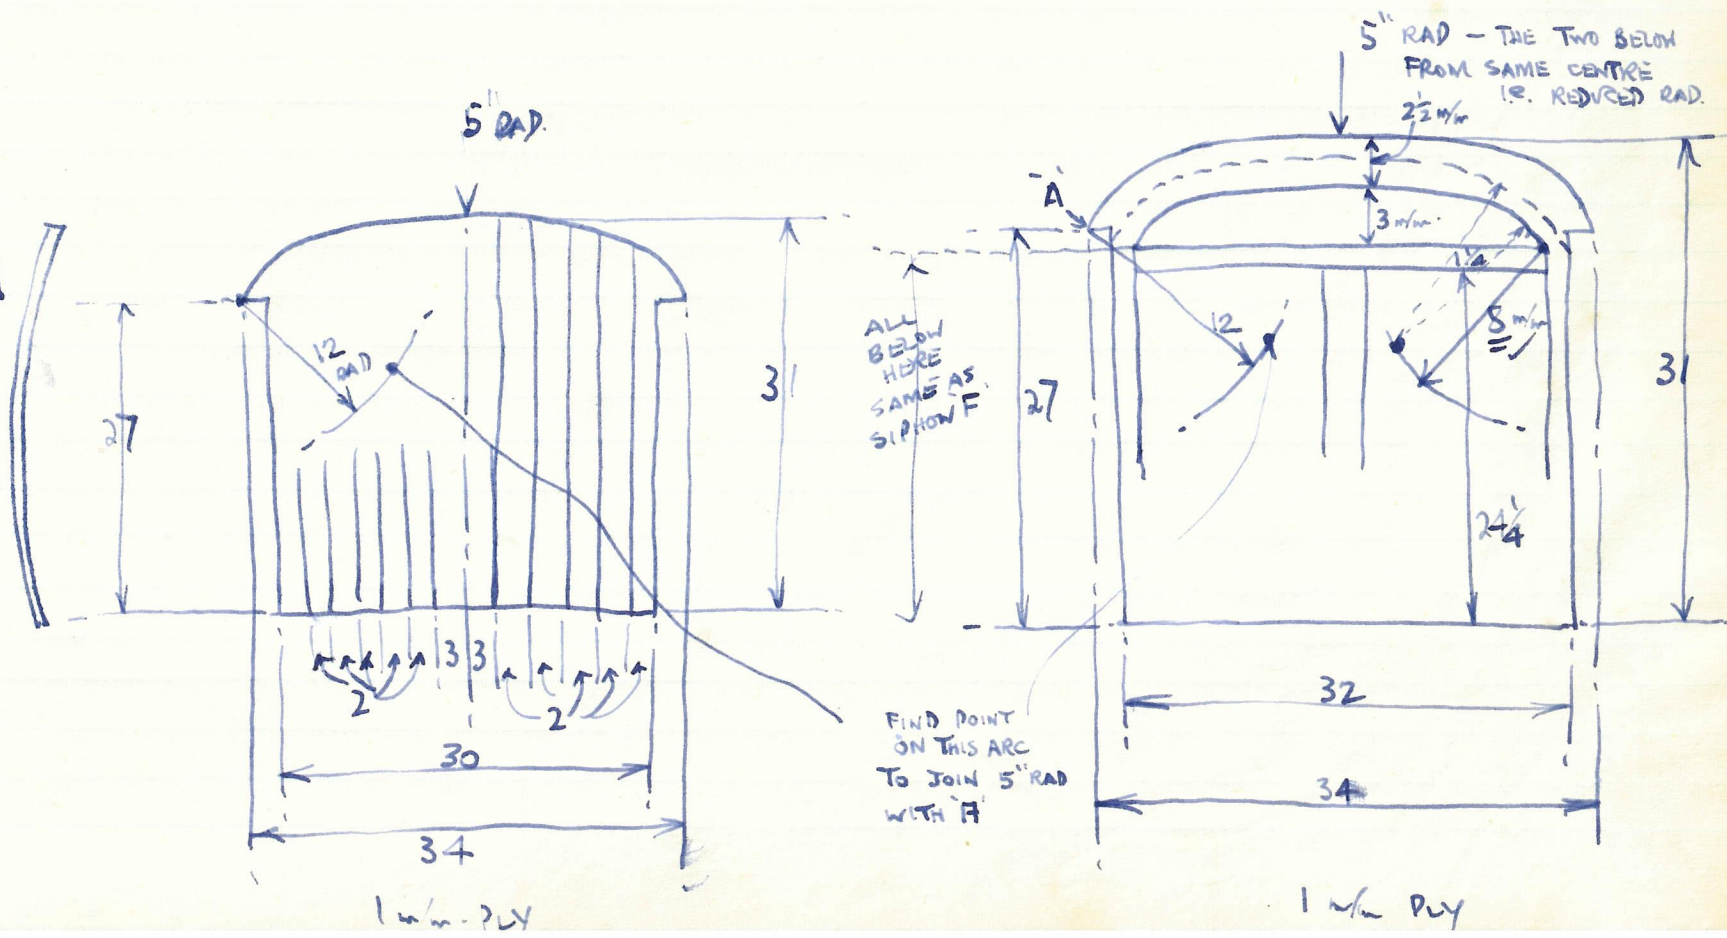 5" RAD.
27
12
RAD
31
3 3
2
2
30
34
1 m/m. PLY
5" RAD — THE TWO BELOW
FROM SAME CENTRE
I.E. REDUCED RAD.
2½ m/m
"A"
3 m/m.
1¼
12
8 m/m
ALL
BELOW
HERE
SAME AS
SIPHON "F"
27
31
24¼
FIND POINT
ON THIS ARC
TO JOIN 5" RAD
WITH "A"
32
34
1 m/m PLY